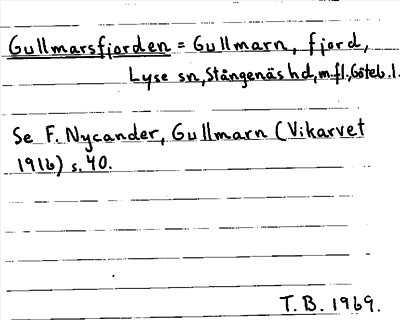 Gullmarsfjorden = Gullmarn, fjord,
Lyse sn, Stångenäs hd, m.fl., Göteb. l.
Se F. Nycander, Gullmarn (Vikarvet
1916) s. 40.
T.B. 1969.